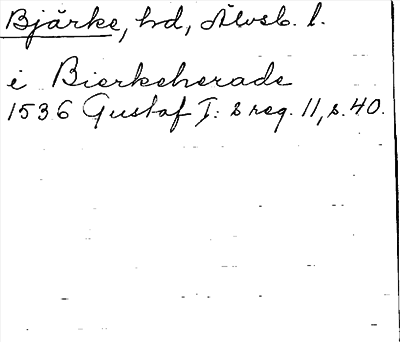 Bjärke, hd, Älvsb. l.
i Bierkeherade
1536 Gustaf I: s reg. 11, s. 40.